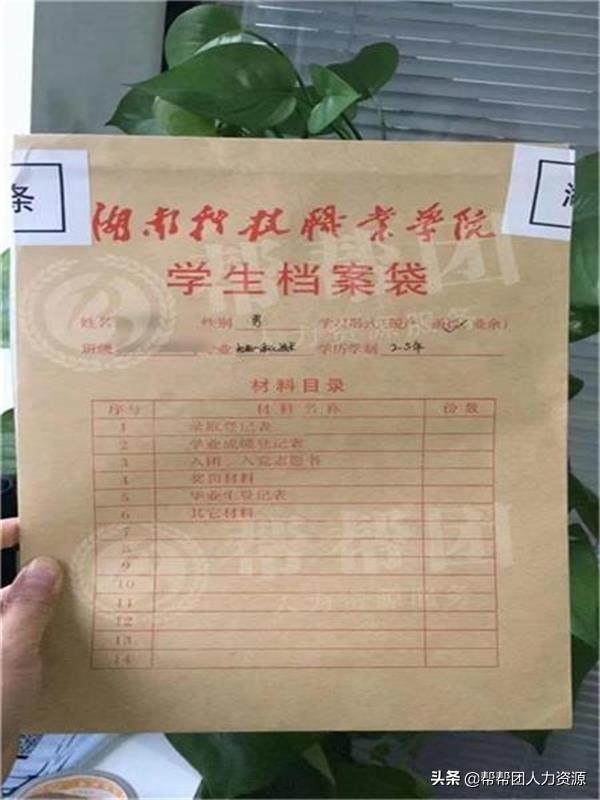 条
湖南科技职业学院
学生档案袋
姓名 性别 男 学习形式(脱产 函授 业余)
班级 专业 学历学制 2.5年
材料目录
序号 材料名称 份数
1 录取登记表
2 学业成绩登记表
3 入团、入党志愿书
4 奖罚材料
5 毕业生登记表
6 其它材料
7
8
9
10
11
12
13
14
帮帮团
人力资源服务
帮帮团
人力资源服务
头条 @帮帮团人力资源